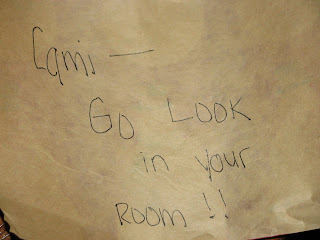 Cami —
GO LOOK
in your
ROOM !!